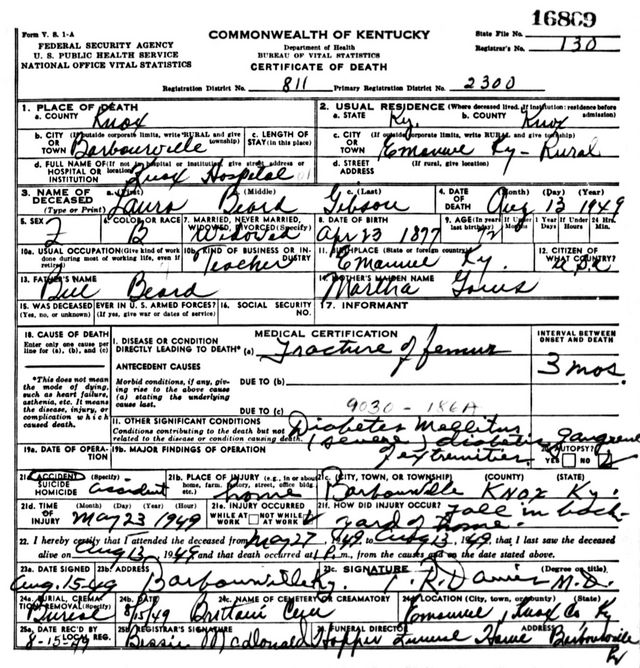 16809
Form V. S. 1-A
COMMONWEALTH OF KENTUCKY
State File No.
FEDERAL SECURITY AGENCY
Department of Health
Registrar's No. 130
U. S. PUBLIC HEALTH SERVICE
BUREAU OF VITAL STATISTICS
NATIONAL OFFICE VITAL STATISTICS
CERTIFICATE OF DEATH
Registration District No. 811 Primary Registration District No. 2300
1. PLACE OF DEATH
a. COUNTY Knox
2. USUAL RESIDENCE (Where deceased lived. If institution: residence before admission)
a. STATE Ky. b. COUNTY Knox
b. CITY (If outside corporate limits, write RURAL and give township) OR TOWN Barbourville
c. LENGTH OF STAY (in this place)
c. CITY (If outside corporate limits, write RURAL and give township) OR TOWN Emanuel Ky - Rural
d. FULL NAME OF (If not in hospital or institution, give street address or location) HOSPITAL OR INSTITUTION Knox Hospital
d. STREET ADDRESS (If rural, give location)
3. NAME OF DECEASED (Type or Print) a. (First) Laura b. (Middle) Beard c. (Last) Gibson
4. DATE OF DEATH (Month) (Day) (Year) Aug 13 1949
5. SEX F
6. COLOR OR RACE B
7. MARRIED, NEVER MARRIED, WIDOWED, DIVORCED (Specify) Widowed
8. DATE OF BIRTH Apr 23 1877
9. AGE (In years 72
10a. USUAL OCCUPATION (Give kind of work done during most of working life, even if retired)
10b. KIND OF BUSINESS OR INDUSTRY Teacher
11. BIRTHPLACE (State or foreign country) Emanuel Ky.
12. CITIZEN OF WHAT COUNTRY?
13. FATHER'S NAME Bill Beard
14. MOTHER'S MAIDEN NAME Martha
15. WAS DECEASED EVER IN U. S. ARMED FORCES? (Yes, no, or unknown) (If yes, give war or dates of service)
16. SOCIAL SECURITY NO.
17. INFORMANT
18. CAUSE OF DEATH
Enter only one cause per line for (a), (b), and (c)
MEDICAL CERTIFICATION
INTERVAL BETWEEN ONSET AND DEATH
I. DISEASE OR CONDITION DIRECTLY LEADING TO DEATH* (a) Fracture of femur 3 mos.
ANTECEDENT CAUSES
*This does not mean the mode of dying, such as heart failure, asthenia, etc. It means the disease, injury, or complication which caused death.
Morbid conditions, if any, giving rise to the above cause (a) stating the underlying cause last.
DUE TO (b)
DUE TO (c)
9030 - 186A
II. OTHER SIGNIFICANT CONDITIONS
Conditions contributing to the death but not related to the disease or condition causing death.
Diabetes Mellitus (severe) diabetic gangrene extremities
19a. DATE OF OPERATION
19b. MAJOR FINDINGS OF OPERATION
20. AUTOPSY? YES NO
21a. ACCIDENT (Specify) SUICIDE HOMICIDE accident
21b. PLACE OF INJURY (e.g., in or about home, farm, factory, street, office bldg. home
21c. (CITY, TOWN, OR TOWNSHIP) (COUNTY) (STATE)
Barbourville Knox Ky.
21d. TIME OF INJURY (Month) (Day) (Year) (Hour) May 23 1949
21e. INJURY OCCURRED WHILE AT WORK NOT WHILE AT WORK
21f. HOW DID INJURY OCCUR? Fall in back-yard of home.
22. I hereby certify that I attended the deceased from May 27, 1949, to Aug 13, 1949, that I last saw the deceased alive on Aug 13, 1949, and that death occurred at 1 P.m., from the causes and on the date stated above.
23a. DATE SIGNED Aug. 15-49
23b. ADDRESS Barbourville Ky.
23c. SIGNATURE (Degree or title) M.D.
24a. BURIAL, CREMATION, REMOVAL (Specify) Burial
24b. DATE 8/15/49
24c. NAME OF CEMETERY OR CREMATORY Brittain Cem
24d. LOCATION (City, town, or county) (State) Emanuel, Knox Co Ky
25a. DATE REC'D BY LOCAL REG. 8-15-49
25b. REGISTRAR'S SIGNATURE Bessie McDonald
26. FUNERAL DIRECTOR Hopper Funeral Home
ADDRESS Barbourville Ky